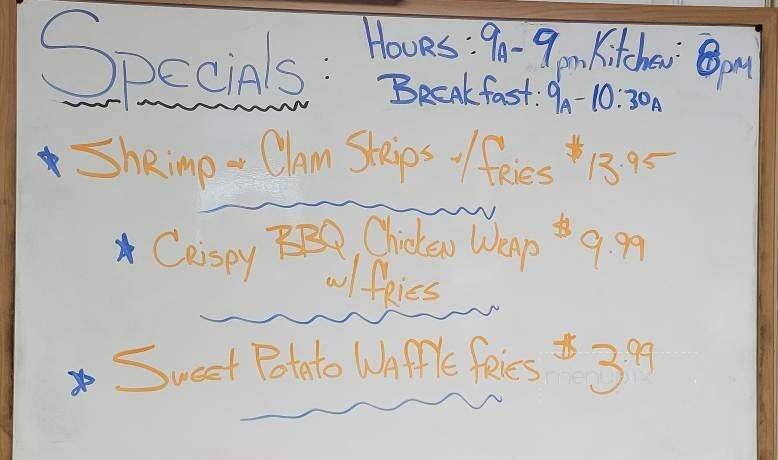 Specials: Hours: 9A-9pm Kitchen: 8pm
Breakfast: 9A-10:30A
Shrimp + Clam Strips w/ fries $13.95
Crispy BBQ Chicken Wrap $9.99
w/ fries
Sweet Potato Waffle fries $3.99
menupix